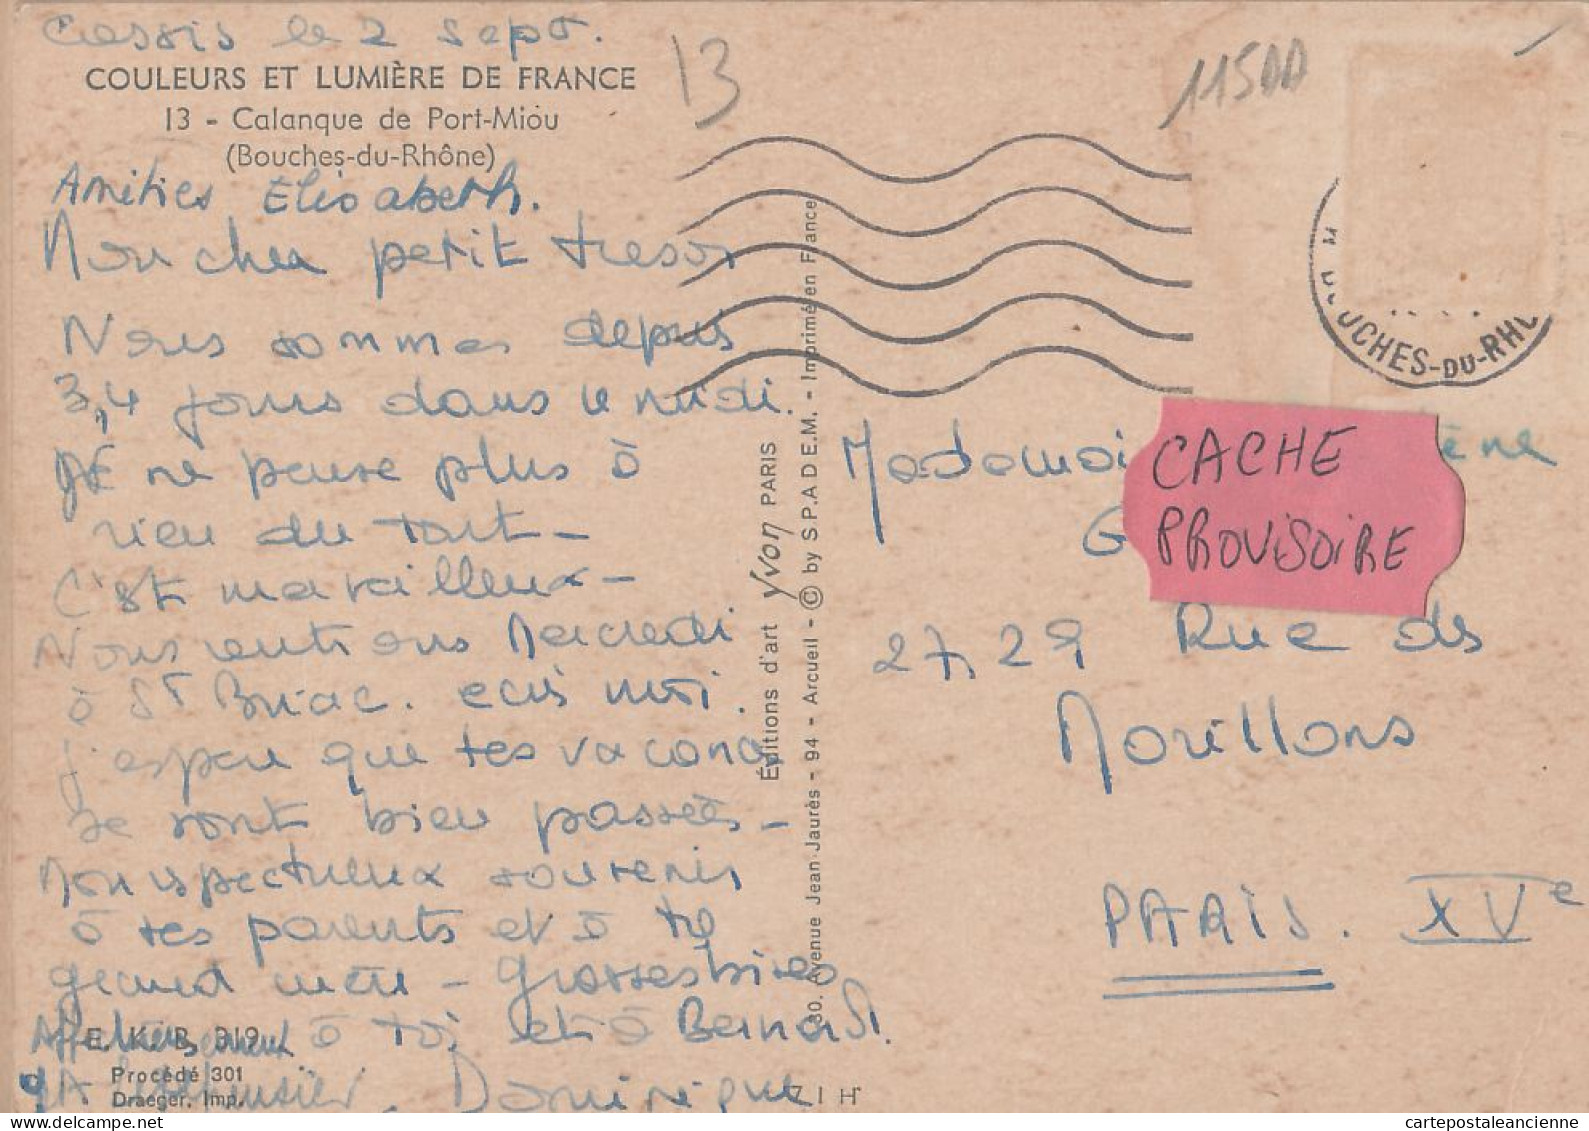 Cassis le 2 Sept.
COULEURS ET LUMIÈRE DE FRANCE
13 - Calanque de Port-Miou
(Bouches-du-Rhône)
Amitiés Elisabeth.
Mon cher petit tresor
Nous sommes depuis
3,4 jours dans le midi.
JE ne pense plus à
rien du tout -
C'est merveilleux -
Nous rentrons Mercredi
à St Briac. ecris moi.
j'espere que tes vacances
se sont bien passées -
Mon respectueux souvenir
à tes parents et à ta
grand mère - Grosses bises
à toi et à Bernard.
E. K. B. 319.
Procédé 301
Draeger, Imp.
Dominique
Z I H
13
11500
Éditions d'art Yvon PARIS
30, Avenue Jean Jaurès - 94 - Arcueil - © by S.P.A.D.E.M. - Imprimé en France
BOUCHES-DU-RHO
Mademoi
ène
G
CACHE
PROVISOIRE
27,29 Rue des
Morillons
PARIS. XVe
cartepostaleancienne